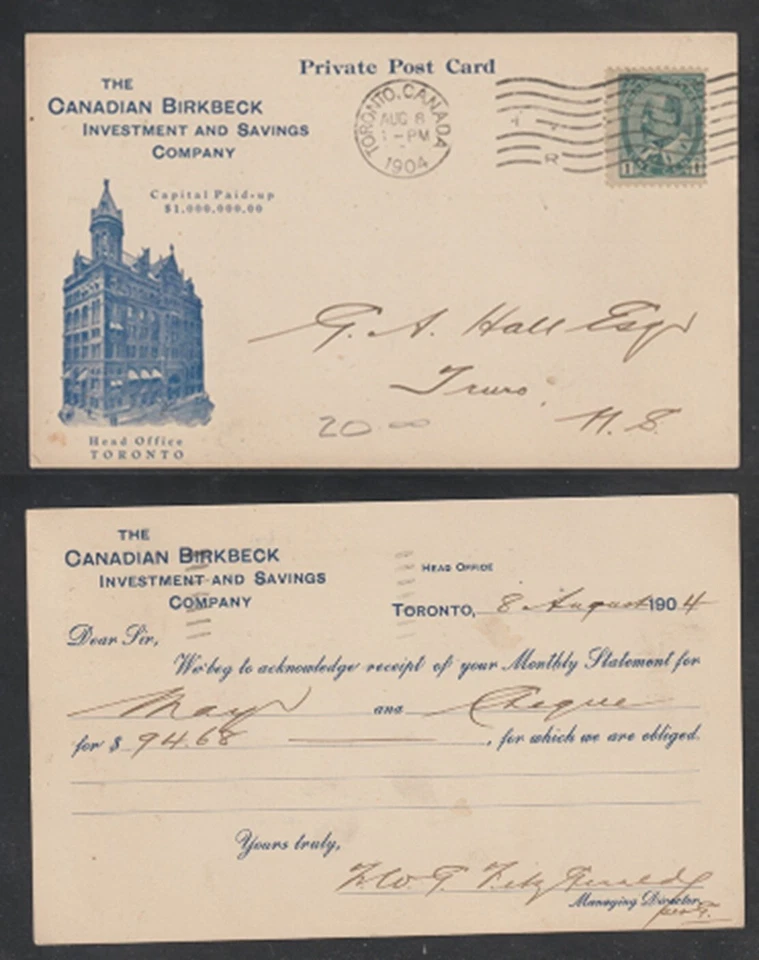 Private Post Card
THE
CANADIAN BIRKBECK
INVESTMENT AND SAVINGS
COMPANY
Capital Paid-up
$1,000,000.00
TORONTO, CANADA
AUG 8
1-PM
1904
R
1
G. A. Hall Esqr
Truro,
N. S.
20.00
Head Office
TORONTO
THE
CANADIAN BIRKBECK
INVESTMENT AND SAVINGS
COMPANY
HEAD OFFICE
TORONTO, 8 August 1904
Dear Sir,
We beg to acknowledge receipt of your Monthly Statement for
May and Cheque
for $ 94.68, for which we are obliged.
Yours truly,
F. W. G. Fitzgerald
Managing Director
per G.